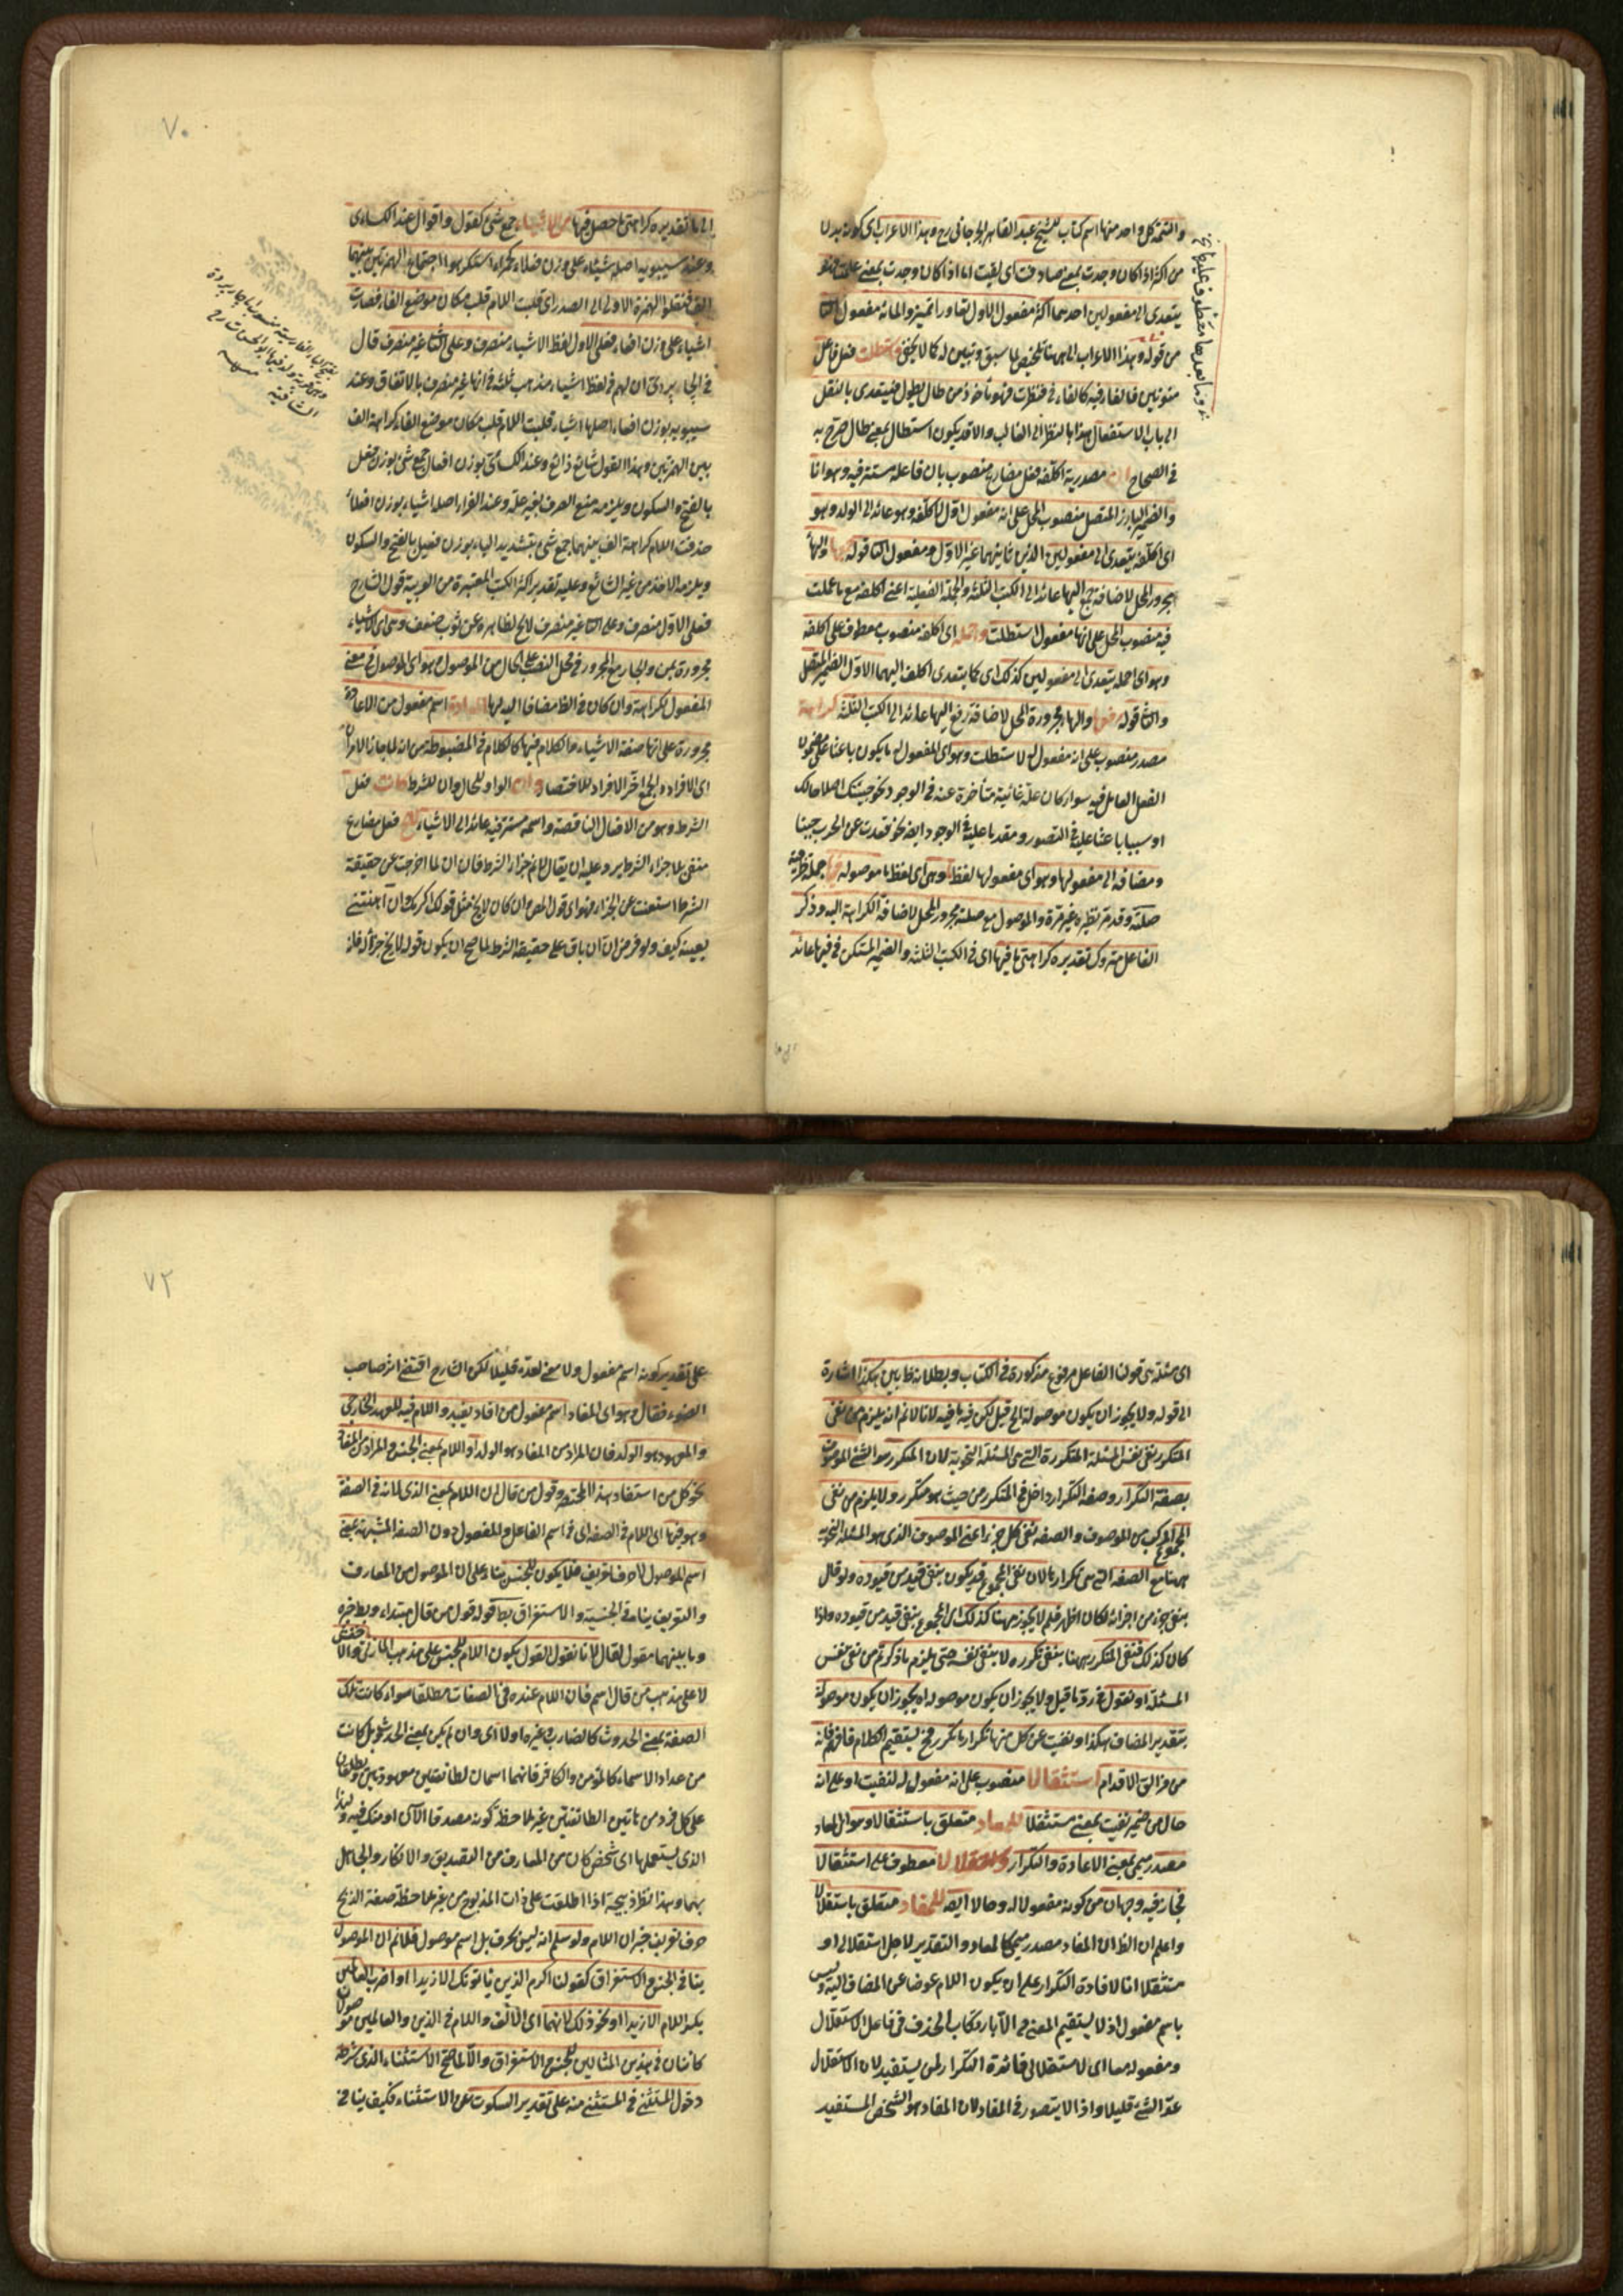 والتتمة كل واحد منها اسم كتاب للشيخ عبد القاهر الجرجانى رح وهذا الاعراب اى كونه بدلا
من اكثر اذا كان وجدت بمعنى صادفت اى لقيت اما اذا كان وجدت بمعنى علمت فهو
يتعدى الى مفعولين احدهما اكثر مفعول الاول تعاورا تميز والمائة مفعول الثانى
من قوله وبهذا الاعراب الى ههنا تلخيص لما سبق وتبيين له كما لا يخفى فاستطلت فعل فاعل
منونين فالفاء فيه كالفاء فى فنظرت فهو مأخوذ من طال يطول فيتعدى بالنقل
الى باب الاستفعال هذا بالنظر الى الغالب والا قد يكون استطال بمعنى طال صرح به
فى الصحاح ان مصدرية اكلفه فعل مضارع منصوب بان فاعله مستتر فيه وهو انا
والضمير البارز المتصل منصوب المحل على انه مفعول اول لاكلفه وهو عائد الى الولد وهو
اى اكلفه يتعدى الى مفعولين الذين ثانيهما غير الاول ومفعول الثانى قوله جمعها والهاء
مجرور المحل لاضافة جمع اليها عائد الى الكتب الثلثة والجملة الفعلية اعنى اكلفه مع ما عملت
فيه منصوب المحل على انها مفعول استطلت واحمله اى اكلفه منصوب معطوف على اكلفه
وهو اى احمله يتعدى الى مفعولين كذلك اى كما يتعدى اكلف اليهما الاول الضمير المتصل
والثانى قوله رفعها والهاء مجرورة المحل لاضافة رفع اليها عائد الى الكتب الثلثة كراهة
مصدر منصوب على انه مفعول له لاستطلت وهو اى المفعول له ما يكون باعثا على مضمون
الفعل العامل فيه سواء كان علة غائية متأخرة عنه فى الوجود نحو جئتك اصلاحا لك
او سببا باعثا عليه فى التصور ومقدما عليه فى الوجود ايضا نحو قعدت عن الحرب جبنا
ومضافة الى مفعولها وهو اى مفعولها لفظ ما وهى اى لفظ ما موصولة فيها جملة ظرفية
صلته وقدمر نظيره غير مرة والموصول مع صلته مجرور المحل لاضافة الكراهة اليه وذكر
الفاعل متروك تقديره كراهتى ما فيها اى فى الكتب الثلثة والضمير المستكن فى فيها عائد
٧٠
الى ما تقديره كراهتى ما حصل فيها من الاشياء جمع شئ كقول واقوال عند الكسائى
وعند سيبويه اصله شيئاء على وزن فعلاء كحمراء استكرهوا اجتماع الهمزتين بينهما
الف فنقلوا الهمزة الاولى الى الصدر اى قلبت اللام قلب مكان موضع الفاء فصارت
اشياء على وزن لفعاء فعلى الاول لفظ الاشياء منصرف وعلى الثانى غير منصرف قال
فى الچارپردى ان لهم فى لفظ اشياء مذاهب ثلثة فى انها غير منصرف بالاتفاق وعند
سيبويه بوزن لفعاء اصلها شيئاء قلبت اللام قلب مكان موضع الفاء كراهة الف
بين الهمزتين وهذا القول شائع ذائع وعند الكسائى بوزن افعال جمع شئ بوزن فعل
بالفتح والسكون ويلزمه منع الصرف بغير علة وعند الفراء اصله اشيياء بوزن افعلاء
حذفت اللام كراهة الف بينهما جمع شئ بتشديد الياء بوزن فعيل بالفتح والسكون
ويلزمه الاخذ من غير الشائع وعليه تقدير اكثر الكتب المعتبرة من العربية قول الشارح
فعلى الاول منصرف وعلى الثانى غير منصرف لايح لظاهره عن ثوب ضعف وهى اى الاشياء
مجرورة بمن والجار مع المجرور فى محل النصب على الحال من الموصول وهو اى الموصول فى معنى
المفعول لكراهة وان كان فى الظ مضافا اليه لها المعادة اسم مفعول من الاعادة
مجرورة على انها صفة الاشياء والكلام فيها كالكلام فى المضبوطة من انه لما جاز الامران
اى الافراد والجمع اختر الافراد للاختصار وان الواو للحال وان للشرط كانت فعل
الشرط وهو من الافعال الناقصة واسمه مستتر فيه عائد الى الاشياء لم تخل فعل مضارع
منفى بلا جزاء الشرط يرد عليه ان يقال لا نم جزاء الشرط فان ان لما اخرجت عن حقيقة
الشرط استغنت عن الجزاء فهو اى قول المص ان كان لا يخ مثل قولك اكرمك وان اهنتنى
بعينه كيف ولو فرض ان ان باق على حقيقة الشرط لما صح ان يكون قوله لا يخ جزاء له فانه
اى مسئلة هى قولنا الفاعل مرفوع مذكورة فى الكتاب وبطلانه ظاهر هكذا اشارة
الى قوله ولا يجوز ان يكون موصولة الخ قيل لكن فيه ما فيه لانا لا نم انه يلزم من نفى
المتكرر نفى نفس المسئلة المتكررة التى هى المسئلة النحوية لان المتكرر هو الشئ الموصوف
بصفة التكرار وصفة التكرار داخل فى المتكرر من حيث هو متكرر ولا يلزم من نفى
المجموع المركب من الموصوف والصفة نفى كل جزء اعنى الموصوف الذى هو المسئلة النحوية
ههنا مع الصفة التى هى تكرارها لان نفى المجموع قد يكون بنفى قيد من قيوده ولو قال
بنفى جزء من اجزائه لكان اظهر فلم لا يجوز ههنا كذلك اى المجموع بنفى قيد من قيوده واذا
كان كذلك فنفى المتكرر ههنا بنفى تكرره لا بنفى نفسه حتى يلزم ما ذكرتم من نفى نفس
المسئلة او نقول فى رد ما قيل ولا يجوز ان يكون موصولة اه يجوز ان يكون موصولة
بتقدير المضاف هكذا ونفيت عن كل منها تكرار ما تكرر فح يستقيم الكلام فافهم فانه
من مزالق الاقدام استثقالا منصوب على انه مفعول له لنفيت او على انه
حال من ضمير نفيت بمعنى مستثقلا للمعاد متعلق باستثقالا وهو اى المعاد
مصدر ميمى بمعنى الاعادة والتكرار واستقلالا معطوف على استثقالا
فجاز فيه وجهان من كونه مفعولا له وحالا ايضا للمفاد متعلق باستقلالا
واعلم ان الظ ان المفاد مصدر ميمى كالمعاد والتقدير لاجل استقلالى او
مستقلا انا لافادة التكرار على ان يكون اللام عوضا عن المضاف اليه وليس
باسم مفعول اذ لا يستقيم المعنى الا بارتكاب الحذف فى فاعل الاستقلال
ومفعوله معا اى لاستقلالى فائدة التكرار لمن يستفيد لان الاستقلال
عد الشئ قليلا واذا لا يتصور فى المفاد لان المفاد هو الشخص المستفيد
٧٢
على تقدير كونه اسم مفعول ولا معنى لعده قليلا لكن الشارح اقتفى اثر صاحب
الضوء فقال وهو اى المفاد اسم مفعول من افاد يفيد واللام فيه للعهد الخارجى
والمعهود هو الولد فان المراد من المفاد هو الولد او اللام بمعنى الجنس والمراد من المفاد
نحو كل من استفاد هذا المختصر وقول من قال ان اللام بمعنى الذى لانه فى الصفة
وهو فيها اى اللام فى الصفة اى فى اسم الفاعل والمفعول دون الصفة المشبهة بمعنى
اسم الموصول لا حرف تعريف فلا يكون للجنس بناء على ان الموصول من المعارف
والتعريف ينافى الجنسية والاستغراق بط قوله قول من قال مبتداء وبط خبره
وما بينهما مقول لقال لانا نقول القول بكون اللام للجنس على مذهب المازنى والاخفش
لا على مذهب من قال اسم فان اللام عنده فى الصفات مطلقا سواء كانت تلك
الصفة بمعنى الحدوث كالضارب وغيره اولا اى وان لم يكن بمعنى الحدوث بل كانت
من عداد الاسماء كالمؤمن والكافر فانهما اسمان لطائفتين معهودتين ويطلقان
على كل فرد من هاتين الطائفتين بغير ملاحظة كونه مصدقا الآن او منكرا فيه ولهذا
الذى يستعملها اى شخص كان من المعارف من التصديق والانكار والجاهل
بهما وهذا نظر ذبيحة اذا اطلقت على ذات المذبوح من غير ملاحظة صفة الذبح
حرف تعريف خبر ان اللام ولو سلم انه ليس بحرف بل اسم موصول فلا نم ان الموصول
ينافى الجنس والاستغراق كقولك اكرم الذين ياتونك الا زيدا او اضرب العالمين
بكسر اللام الا زيدا او نحو ذلك لانهما اى الالف واللام فى الذين والعالمين موصولان
كائنان فى هذين المثالين للجنس والاستغراق والا لما صح الاستثناء الذى شرطه
دخول المستثنى فى المستثنى منه على تقدير السكوت عن الاستثناء فكيف ينافى